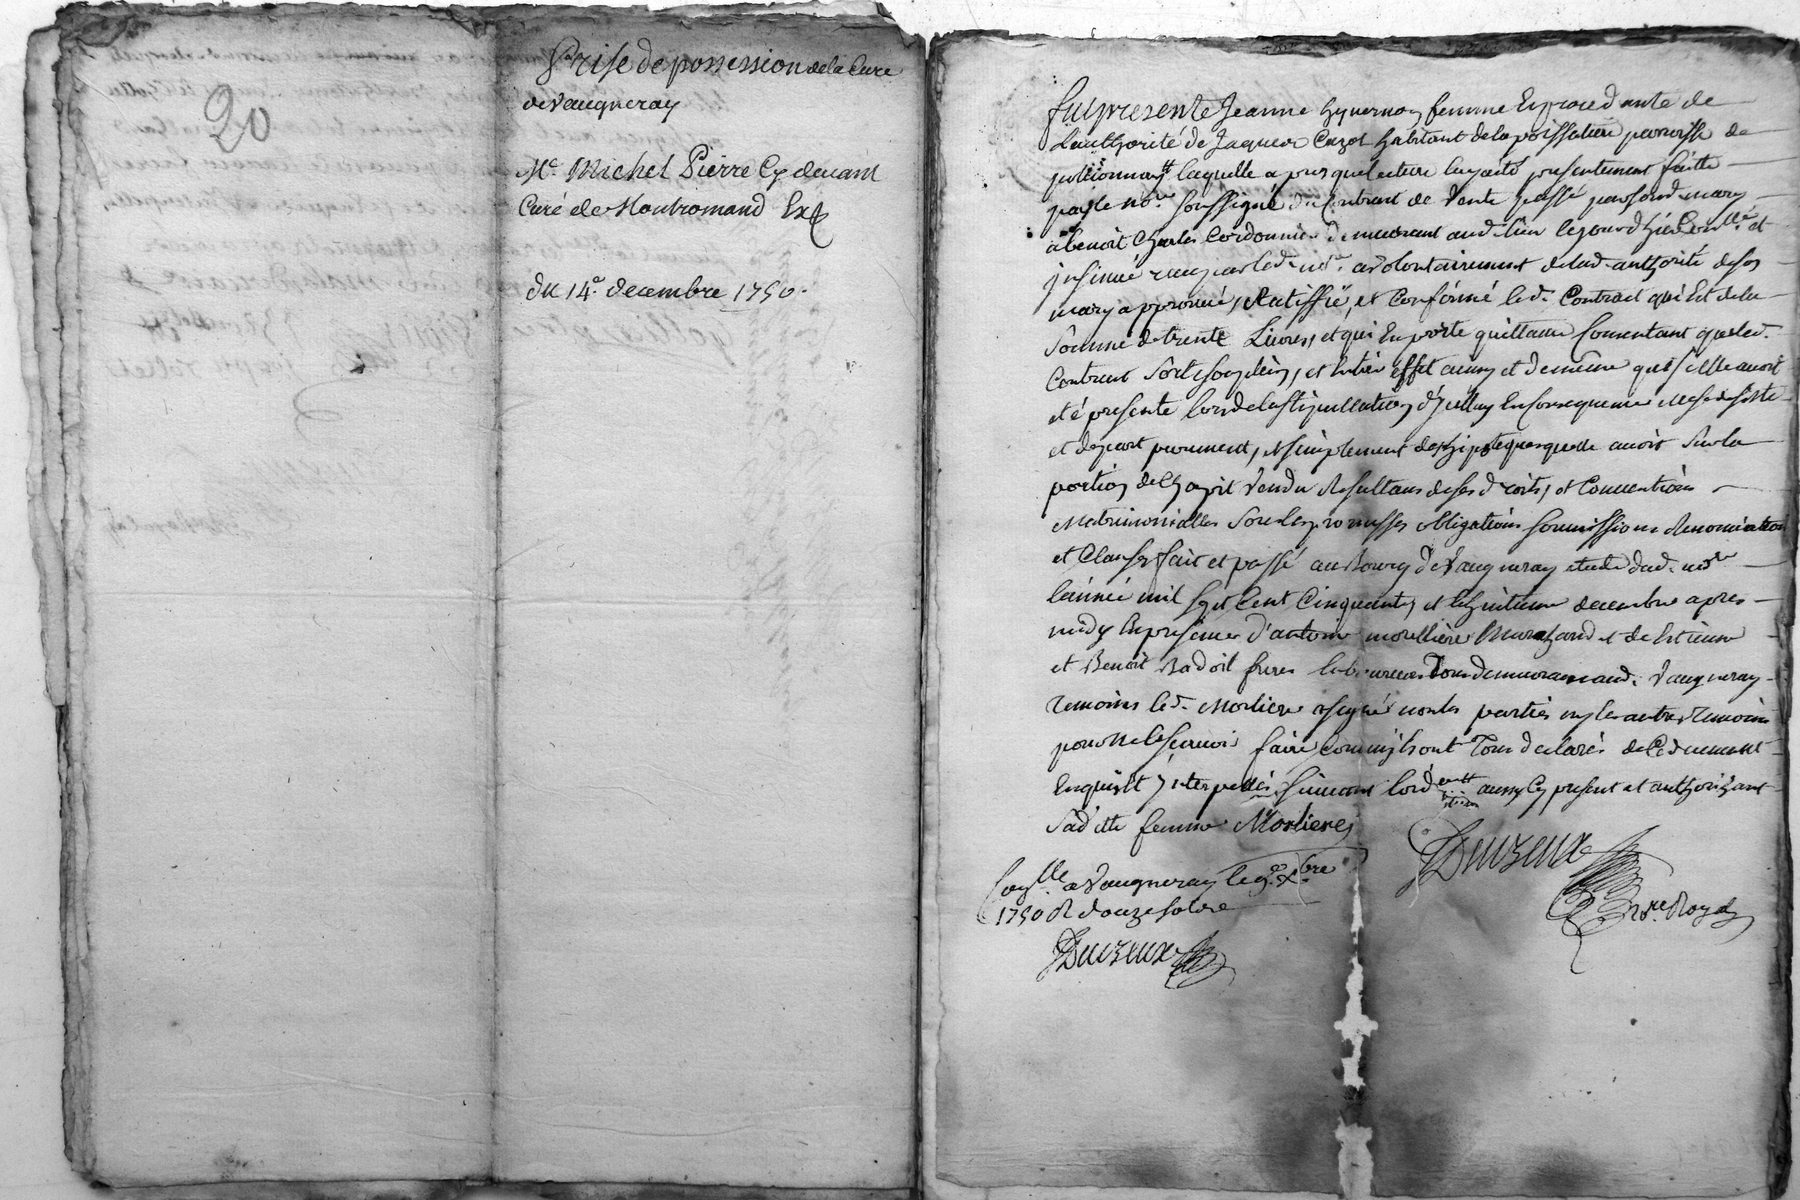 20
Prise de possession de la Cure
de Vaugneray
Me. Michel Pierre Cy devant
Curé de Montromand Exp
du 14e. decembre 1750.
fut presente Jeanne Guyernoy femme Et procedante de
L'authorité de Jaques Cazot habitant de la poissatiere parroisse de
pollionnay laquelle apres que lecture luy a eté presentement faitte
par le nore. soussigné du Contrat de vente passé par son d. mary
a benoit Charles Cordonnier demeurant aud. lieu le jour d'hier Conllé. et
insinué reçu par led. nore. a volontairement de lad. authorité de son
mary approuvé, Ratiffié, et Confirmé led. Contract qui Est de la
Somme de trente Livres, et qui Emporte quittance Consentant que led.
Contract Sorte son plein, et Entier effet aussy et de meme que si Elle avoit
eté presente lors de la stipullation d'Jcelluy En consequence elle se desiste
et depart purement, et simplement des hipoteques qu'elle avoit sur la
portion de Chapit vendu Resultans de ses droits, et Conventions
Matrimonialles Sous les promesses obligations soumissions Renonciation
et Clauses fait et passé au Bourg de Vaugneray etude dud. nore
l'année mil sept Cent Cinquante, et le huitieme decembre apres
midy En presence d'antoine morelliere Marchand et de Estienne
et Benoit Badoil freres laboureurs Tous demeurans aud. Vaugneray
temoins led. Morliere a signé non les parties ny les autres temoins
pour ne le scavoir faire Comm'ils ont Tous declarés de Ce duement
Enquis et Jnterpellés suivant l'ord aussy Cy present et authorizant
Sad. itte femme Morliere
Duzeux
Conllé. a Vaugneray le 9e. xbre
1750 R douze sols
Nore. Royal
Duzeux